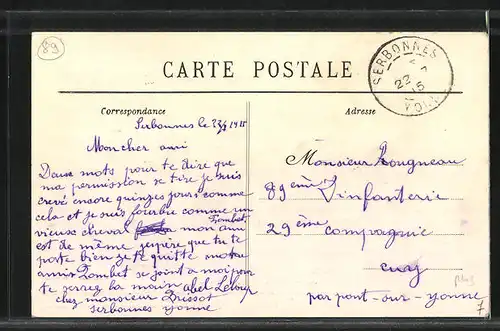 89
CARTE POSTALE
Correspondance
Adresse
SERBONNES
22
15
YONNE
Serbonnes le 1915
Mon cher ami
Deux mots pour te dire que
ma permission se tire je suis
crevé encore quinze jours comme
cela et je suis fourbu comme un
vieux cheval mon ami
Tombet
est de même jespère que tu te
porte bien je te quitte moton
amis Tombet se joint a moi pour
te serrez la main abel Leloup
chez monsieur
serbonnes yonne
Monsieur Rougneau
89ème D'infanterie
29ème compagnie
cuy
par pont-sur-yonne
7